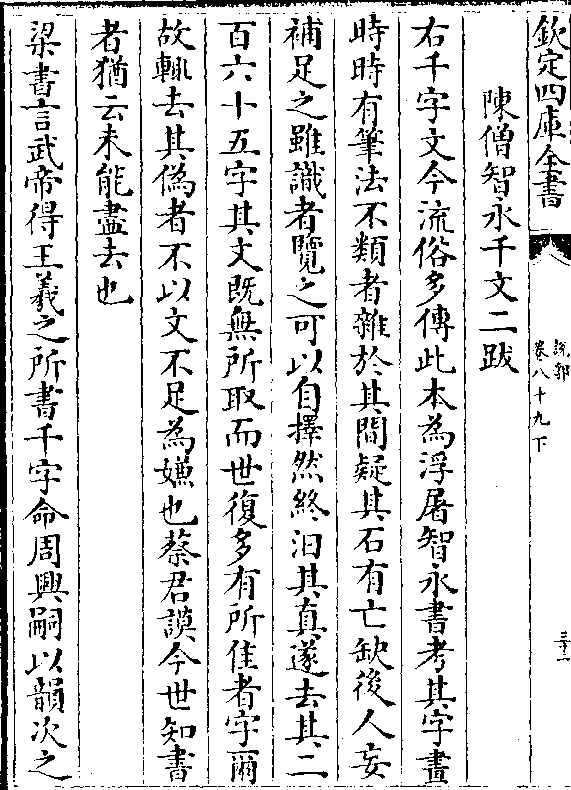 欽定四庫全書
說郛
卷八十九下
三十二
陳僧智永千文二跋
右千字文今流俗多傳此本為浮屠智永書考其字畫
時時有筆法不類者雜於其間疑其石有亡缺後人妄
補足之雖識者覽之可以自擇然終汨其真遂去其二
百六十五字其文既無所取而世復多有所佳者字爾
故輒去其偽者不以文不足為嫌也蔡君謨今世知書
者猶云未能盡去也
梁書言武帝得王羲之所書千字命周興嗣以韻次之